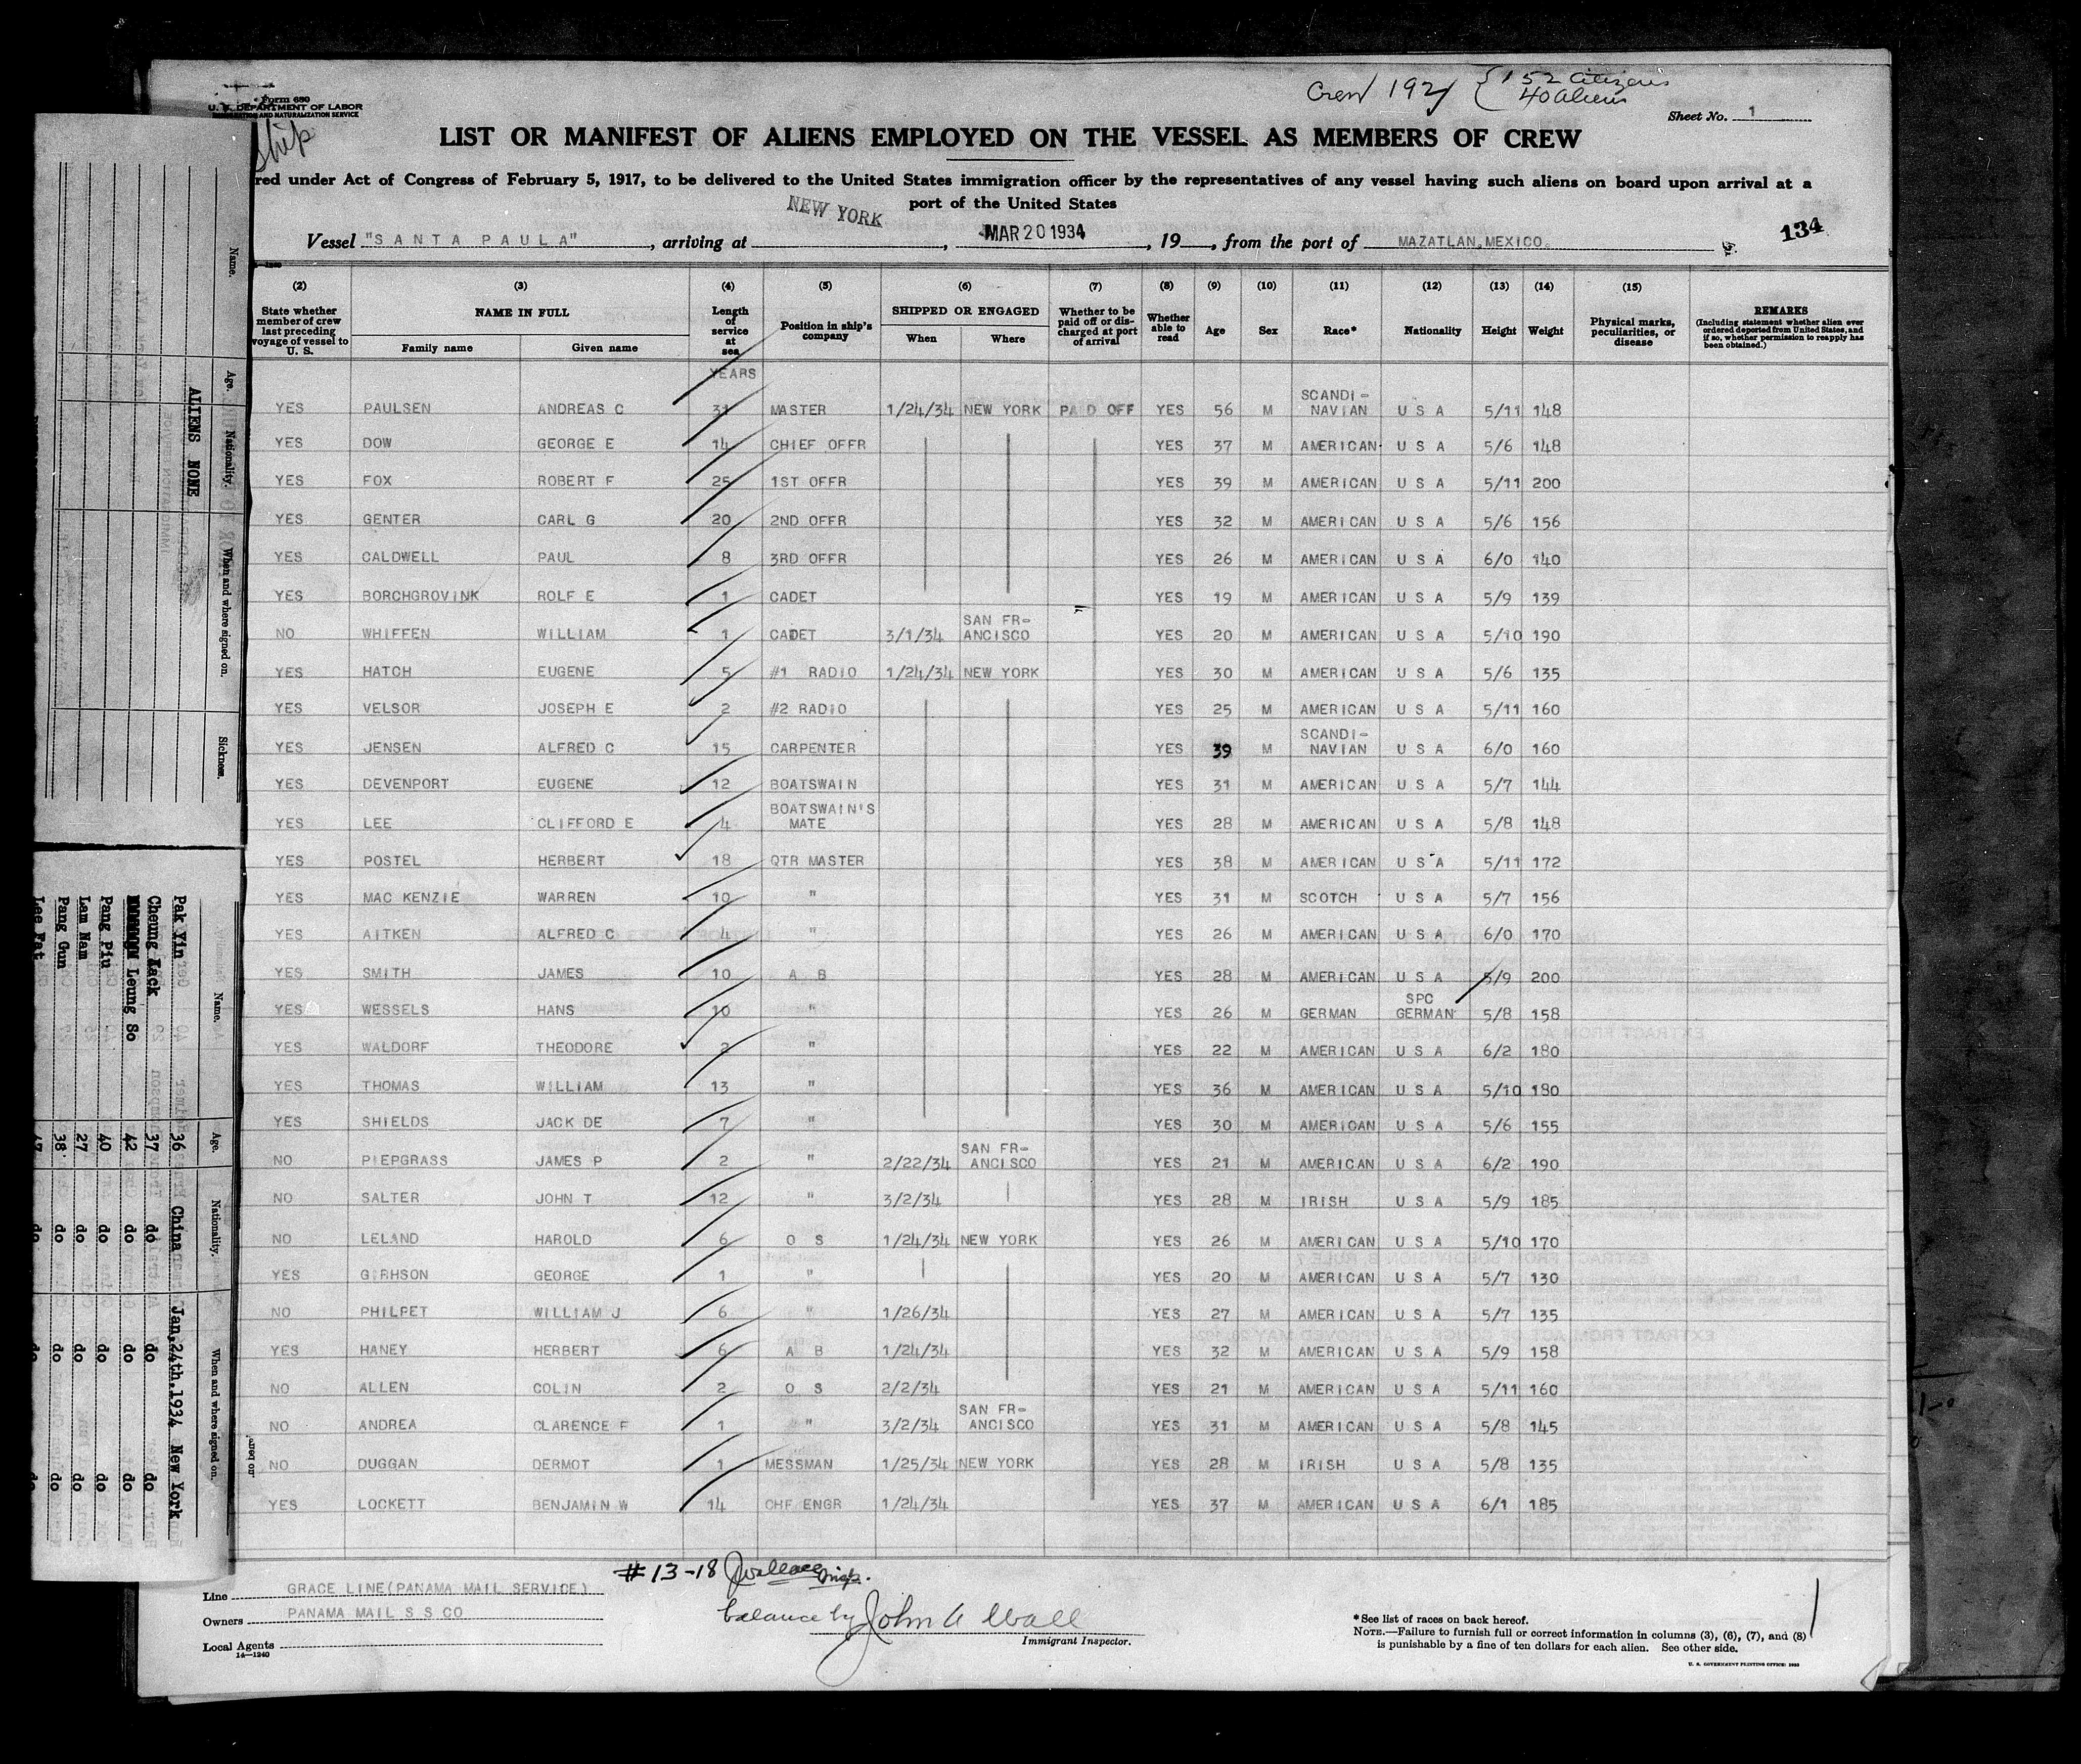 Crew 192 { 152 Citizens
40 Aliens
Form 680
U. S. DEPARTMENT OF LABOR
IMMIGRATION AND NATURALIZATION SERVICE
Sheet No. 1
Ship
LIST OR MANIFEST OF ALIENS EMPLOYED ON THE VESSEL AS MEMBERS OF CREW
red under Act of Congress of February 5, 1917, to be delivered to the United States immigration officer by the representatives of any vessel having such aliens on board upon arrival at a
port of the United States
Vessel "SANTA PAULA", arriving at NEW YORK, MAR 20 1934, 19, from the port of MAZATLAN, MEXICO.
134
(2) (3) (4) (5) (6) (7) (8) (9) (10) (11) (12) (13) (14) (15)
State whether member of crew last preceding voyage of vessel to U. S.
NAME IN FULL
Family name Given name
Length of service at sea
Position in ship's company
SHIPPED OR ENGAGED
When Where
Whether to be paid off or discharged at port of arrival
Whether able to read
Age Sex Race* Nationality Height Weight
Physical marks, peculiarities, or disease
REMARKS
(Including statement whether alien ever ordered deported from United States, and if so, whether permission to reapply has been obtained.)
YEARS
YES PAULSEN ANDREAS C 31 MASTER 1/24/34 NEW YORK PAID OFF YES 56 M SCANDI-NAVIAN U S A 5/11 148
YES DOW GEORGE E 14 CHIEF OFFR YES 37 M AMERICAN U S A 5/6 148
YES FOX ROBERT F 25 1ST OFFR YES 39 M AMERICAN U S A 5/11 200
YES GENTER CARL G 20 2ND OFFR YES 32 M AMERICAN U S A 5/6 156
YES CALDWELL PAUL 8 3RD OFFR YES 26 M AMERICAN U S A 6/0 140
YES BORCHGROVINK ROLF E 1 CADET YES 19 M AMERICAN U S A 5/9 139
NO WHIFFEN WILLIAM 1 CADET 3/1/34 SAN FR-ANCISCO YES 20 M AMERICAN U S A 5/10 190
YES HATCH EUGENE 5 #1 RADIO 1/24/34 NEW YORK YES 30 M AMERICAN U S A 5/6 135
YES VELSOR JOSEPH E 2 #2 RADIO YES 25 M AMERICAN U S A 5/11 160
YES JENSEN ALFRED C 15 CARPENTER YES 39 M SCANDI-NAVIAN U S A 6/0 160
YES DEVENPORT EUGENE 12 BOATSWAIN YES 31 M AMERICAN U S A 5/7 144
YES LEE CLIFFORD E 4 BOATSWAIN'S MATE YES 28 M AMERICAN U S A 5/8 148
YES POSTEL HERBERT 18 QTR MASTER YES 38 M AMERICAN U S A 5/11 172
YES MAC KENZIE WARREN 10 " YES 31 M SCOTCH U S A 5/7 156
YES AITKEN ALFRED C 4 " YES 26 M AMERICAN U S A 6/0 170
YES SMITH JAMES 10 A B YES 28 M AMERICAN U S A 5/9 200
YES WESSELS HANS 10 " YES 26 M GERMAN SPC GERMAN 5/8 158
YES WALDORF THEODORE 2 " YES 22 M AMERICAN U S A 6/2 180
YES THOMAS WILLIAM 13 " YES 36 M AMERICAN U S A 5/10 180
YES SHIELDS JACK DE 7 " YES 30 M AMERICAN U S A 5/6 155
NO PIEPGRASS JAMES P 2 " 2/22/34 SAN FR-ANCISCO YES 21 M AMERICAN U S A 6/2 190
NO SALTER JOHN T 12 " 3/2/34 YES 28 M IRISH U S A 5/9 185
NO LELAND HAROLD 6 O S 1/24/34 NEW YORK YES 26 M AMERICAN U S A 5/10 170
YES GIRHSON GEORGE 1 " YES 20 M AMERICAN U S A 5/7 130
NO PHILPET WILLIAM J 6 " 1/26/34 YES 27 M AMERICAN U S A 5/7 135
YES HANEY HERBERT 6 A B 1/24/34 YES 32 M AMERICAN U S A 5/9 158
NO ALLEN COLIN 2 O S 2/2/34 YES 21 M AMERICAN U S A 5/11 160
NO ANDREA CLARENCE F 1 " 3/2/34 SAN FR-ANCISCO YES 31 M AMERICAN U S A 5/8 145
NO DUGGAN DERMOT 1 MESSMAN 1/25/34 NEW YORK YES 28 M IRISH U S A 5/8 135
YES LOCKETT BENJAMIN W 14 CHF ENGR 1/24/34 YES 37 M AMERICAN U S A 6/1 185
#13-18 J Wallace Insp.
balance by John A Wall
Immigrant Inspector.
Line GRACE LINE(PANAMA MAIL SERVICE)
Owners PANAMA MAIL S S CO
Local Agents
14—1240
*See list of races on back hereof.
NOTE.—Failure to furnish full or correct information in columns (3), (6), (7), and (8)
is punishable by a fine of ten dollars for each alien. See other side.
U. S. GOVERNMENT PRINTING OFFICE: 1933
Name. Age. Nationality. When and where signed on. Sickness.
ALIENS NONE
Name. Age. Nationality. When and where signed on.
Pak Yin 36 China Jan,24th,1934 New York
Cheung Kack 37 do do do
Leung So 42 do do do
Pang Piu 40 do do do
Lam Nam 27 do do do
Pang Gun 38 do do do
Lee Fat 47 do do do